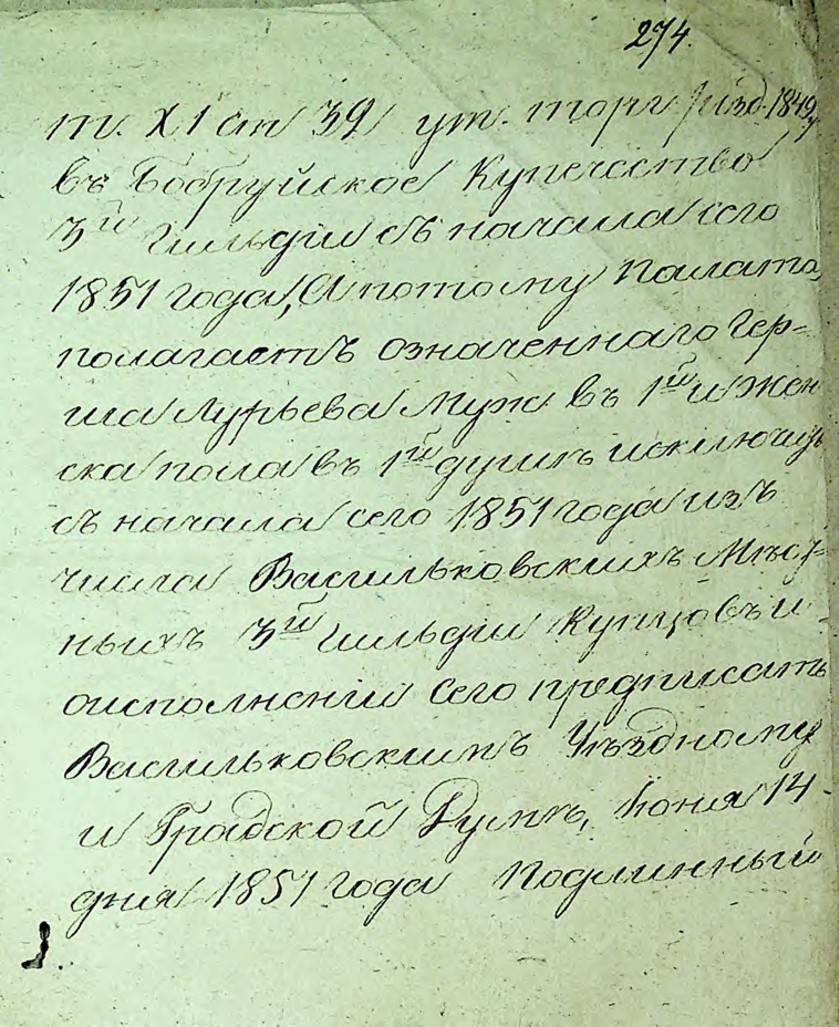 274.
т. XI ст 39 ут. торг /изд. 1849
въ Бобруйское Купечество
3й Гильдіи съ начала сего
1851 года, А потому Палата
полагаетъ означеннаго Гер-
ша Лурьева Муж. въ 1й и Жен
ска пола въ 1й душѣ исключить
съ начала сего 1851 года изъ
числа Васильковскихъ Мѣст-
ныхъ 3й Гильдіи Купцовъ и
о исполненіи Сего предписать
Васильковскимъ Уѣздному
и Градской Думѣ, Іюня 14
дня 1851 года Подлинный